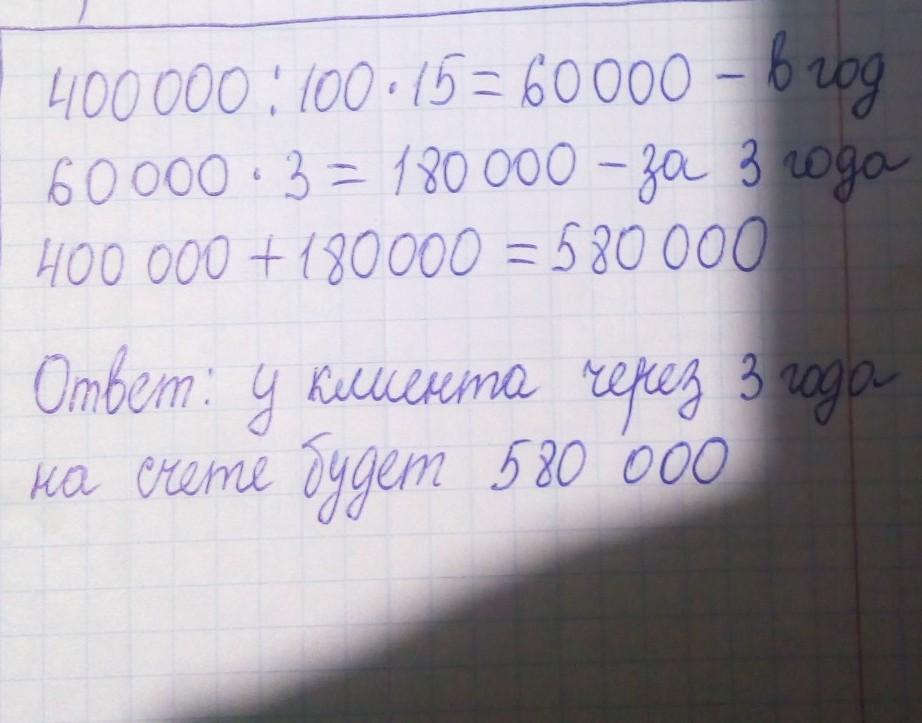 400 000 : 100 · 15 = 60 000 – в год
60 000 · 3 = 180 000 – за 3 года
400 000 + 180 000 = 580 000
Ответ: у клиента через 3 года
на счете будет 580 000